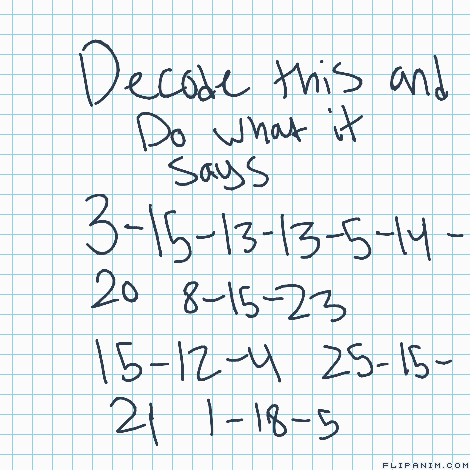 Decode this and
Do what it
says
3-15-13-13-5-14-
20 8-15-23
15-12-4 25-15-
21 1-18-5
FLIPANIM.COM